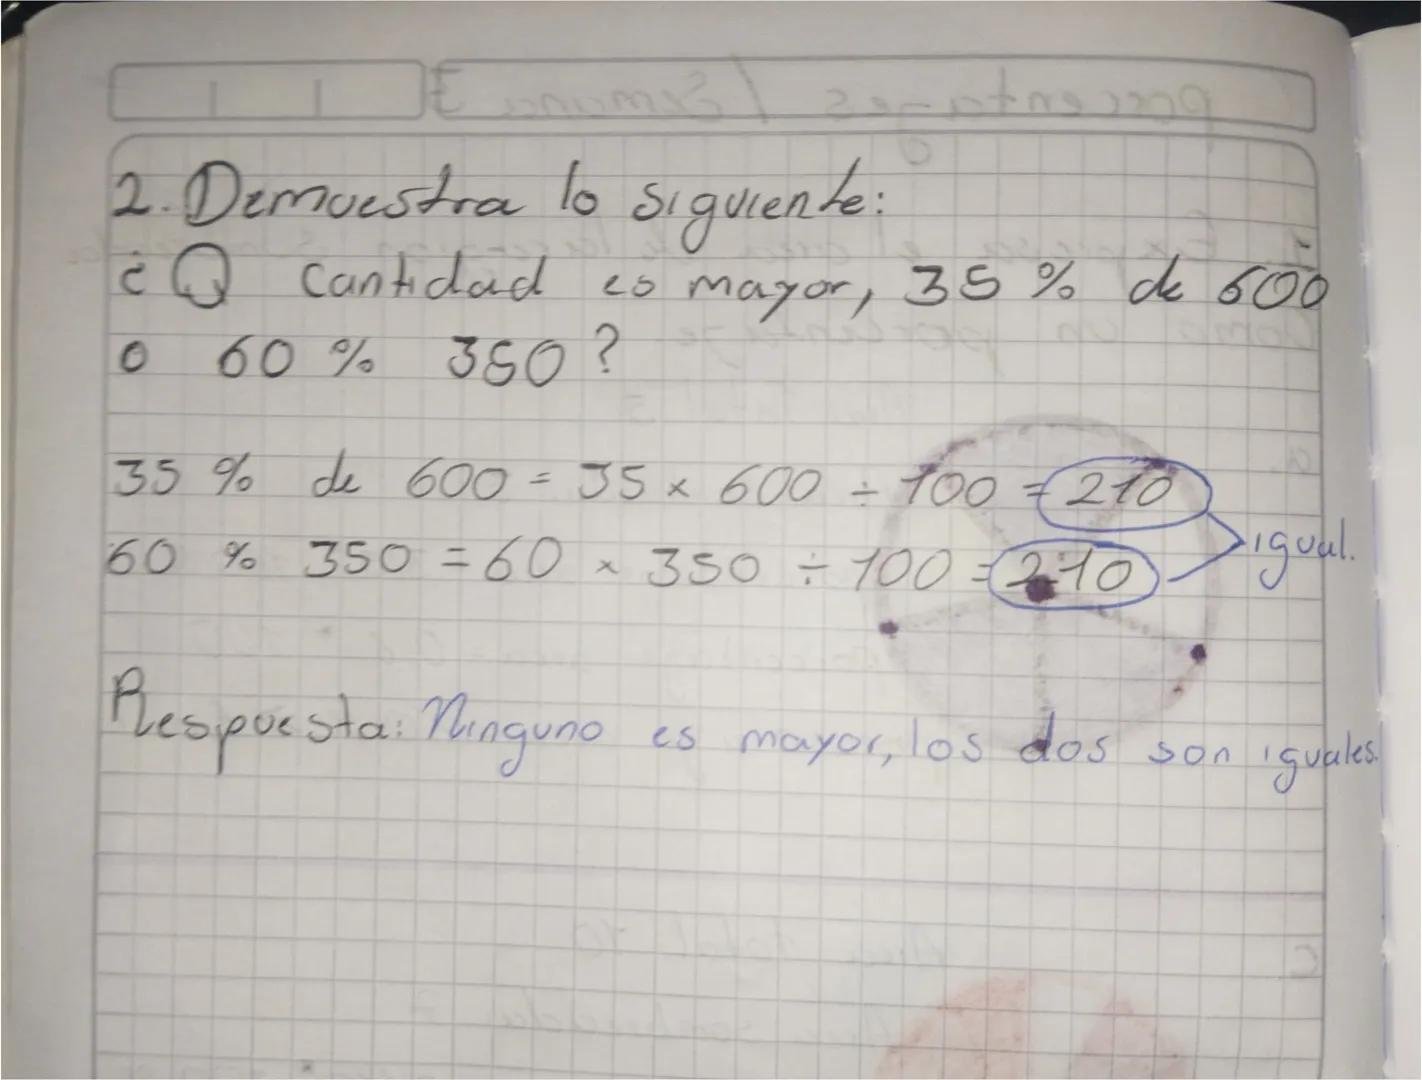 2. Demuestra lo siguiente:
¿Q cantidad es mayor, 35 % de 600
o 60 % 350?
35 % de 600 = 35 × 600 ÷ 100 = 210
60 % 350 = 60 × 350 ÷ 100 = 210
igual.
Respuesta: Ninguno es mayor, los dos son iguales.